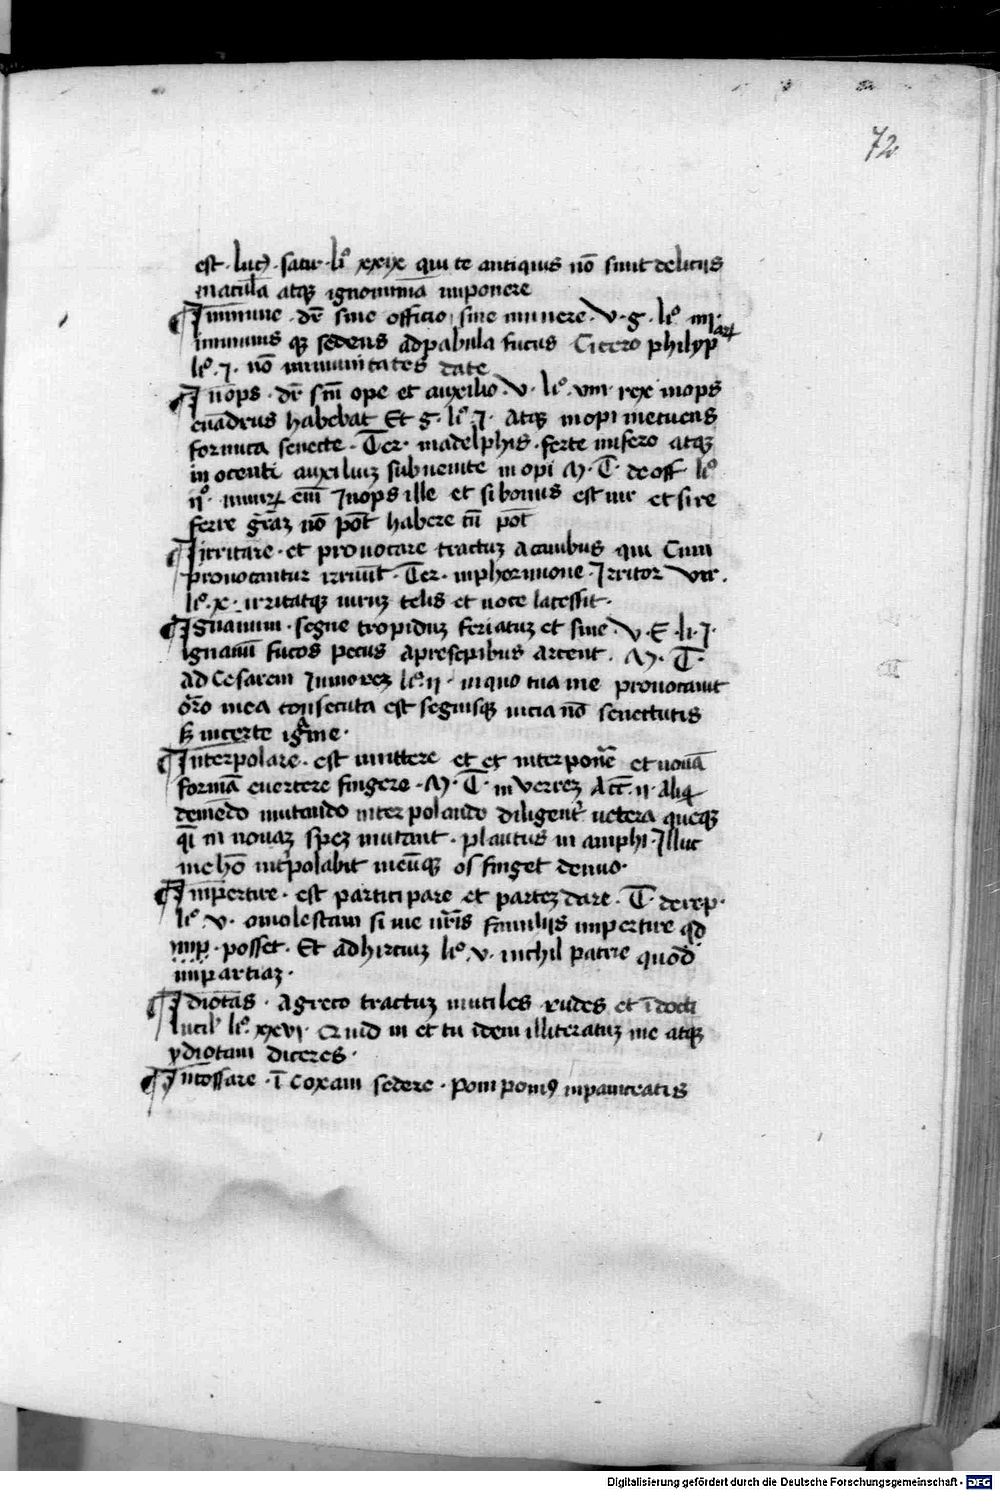 72
est · luciꝰ · satir · liº xxix qui te antiquis nō sinit delitiis
maculā atqꝫ ignominiā imponere
¶ Immune · dr̄ sine officio sine munere · V · g · liº iiij ·
inmunis qꝫ sedens ad pabula fucus Cicero philyp
arꝝ
liº · j · nō inmunitates date
¶ Inops · dr̄ sin̄ ope et auxilio · V · liº · viij · rex inops
euadrus habebat Et g · liº · j · Atqꝫ inopi metuens
formica senecte · Ter · in adelphis · ferte misero atqꝫ
in ocenti auxiliuꝫ subuenite in opi M · T · de off liº
ijº · enī Inops ille et si bonus est uir et si re
ferre grāꝫ nō pōt habere tn̄ pōt
¶ Irritare · et prouocare tractuꝫ a canibus qui Cum
prouocantur irriūt · Ter · in phormione · Irritor Vir ·
liº · x · irritatqꝫ uiruꝫ telis et uoce lacessit ·
¶ Ignauum · segne tropiduꝫ feriatuꝫ et sine · V · g · li · j ·
ignauū fucos pecus a presepibus arcent · M · T ·
Ad Cesarem Iunioreꝫ liº · ij · in quo tua me prouocauit
orō mea consecuta est segnisqꝫ uicia nō senectutis
incerte
¶ Interpolare · est inittere et et interponē et nouā
formā euertere fingere · M · T · in Verreꝫ Acc̄ · ij · Aliqͥ
demēdo mutando interpolando diligent̄ uetera queqꝫ
qī in nouaꝫ speꝫ mutant · plautus in amphi · Illuc
me hō int̄polabit meūqꝫ os finget denuo ·
¶ Impertire · est participare et parteꝫ dare · T · de rep ·
liº · v · o molestam si me nr̄is familiis impertire qd
imp · posset · Et ad hirciuꝫ liº · v · nichil patrie quod
impartiaꝫ ·
¶ Idiotas · a greco tractuꝫ inutiles rudes et īdocti
lucil' liº · xxvj · Quid ni et tu idem illiteratuꝫ me atqꝫ
ydiotam diceres ·
¶ Incossare · ī coxam sedere · Pomponiꝰ in pancreatis
Digitalisierung gefördert durch die Deutsche Forschungsgemeinschaft - DFG